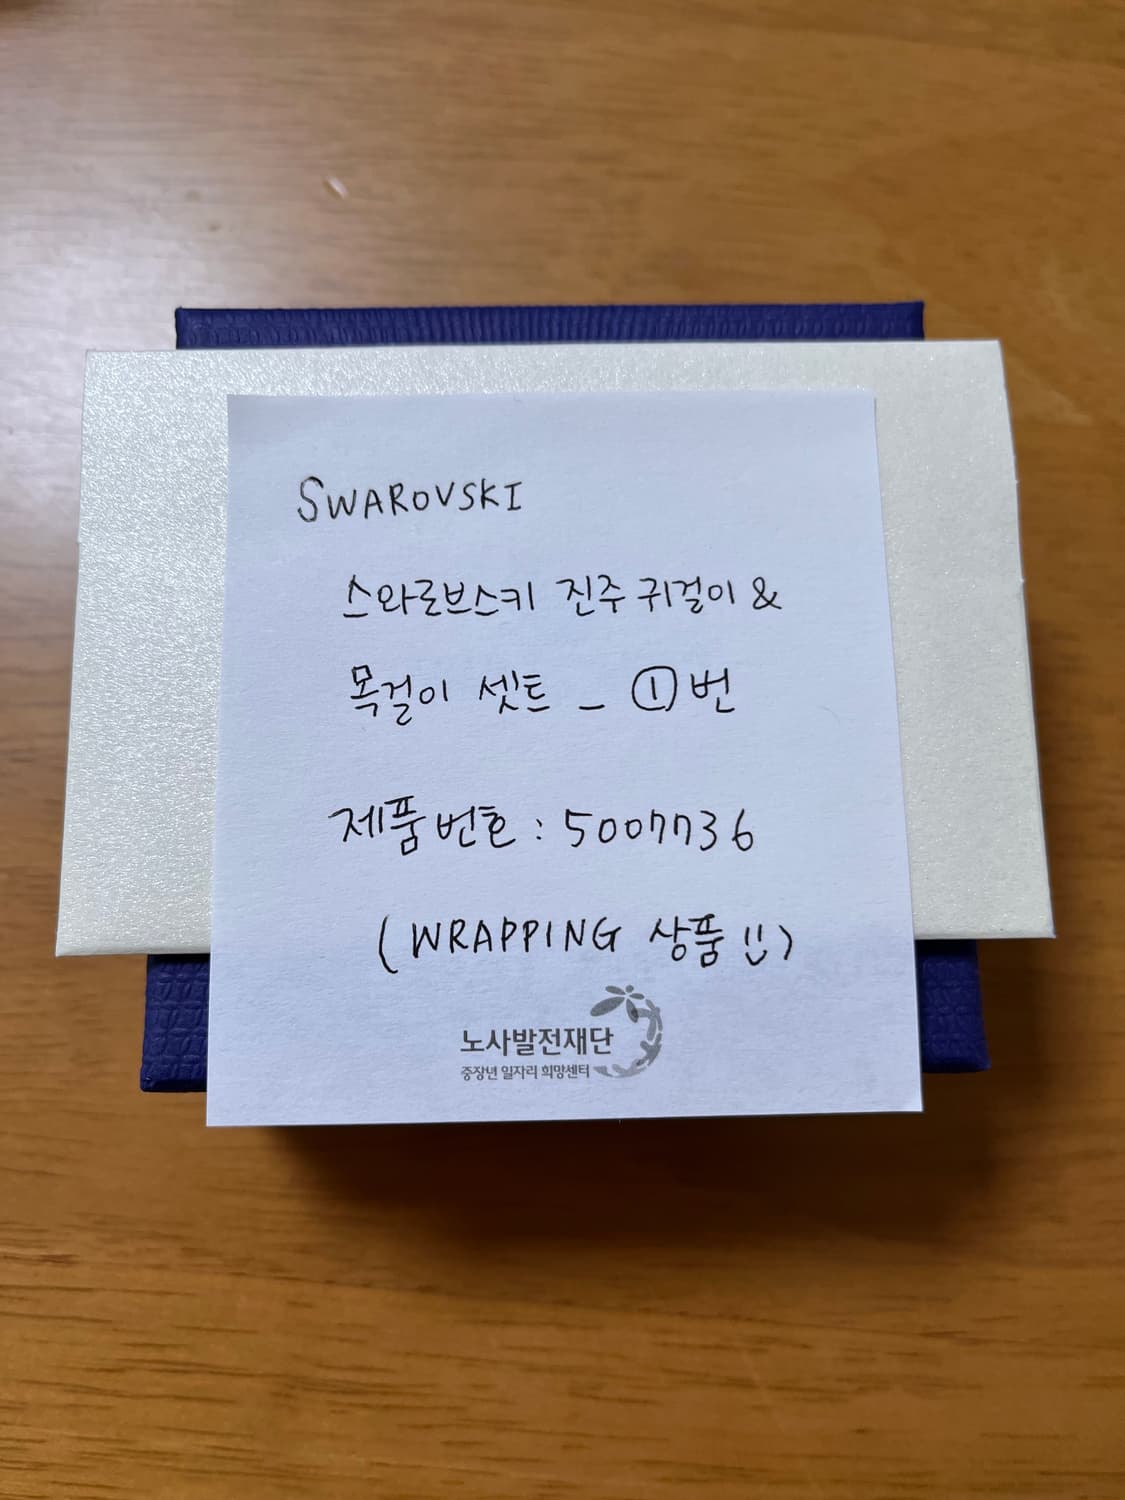 SWAROVSKI
스와로브스키 진주 귀걸이 &
목걸이 셋트 _ ①번
제품번호 : 5007736
(WRAPPING 상품 !!)
노사발전재단
중장년 일자리 희망센터